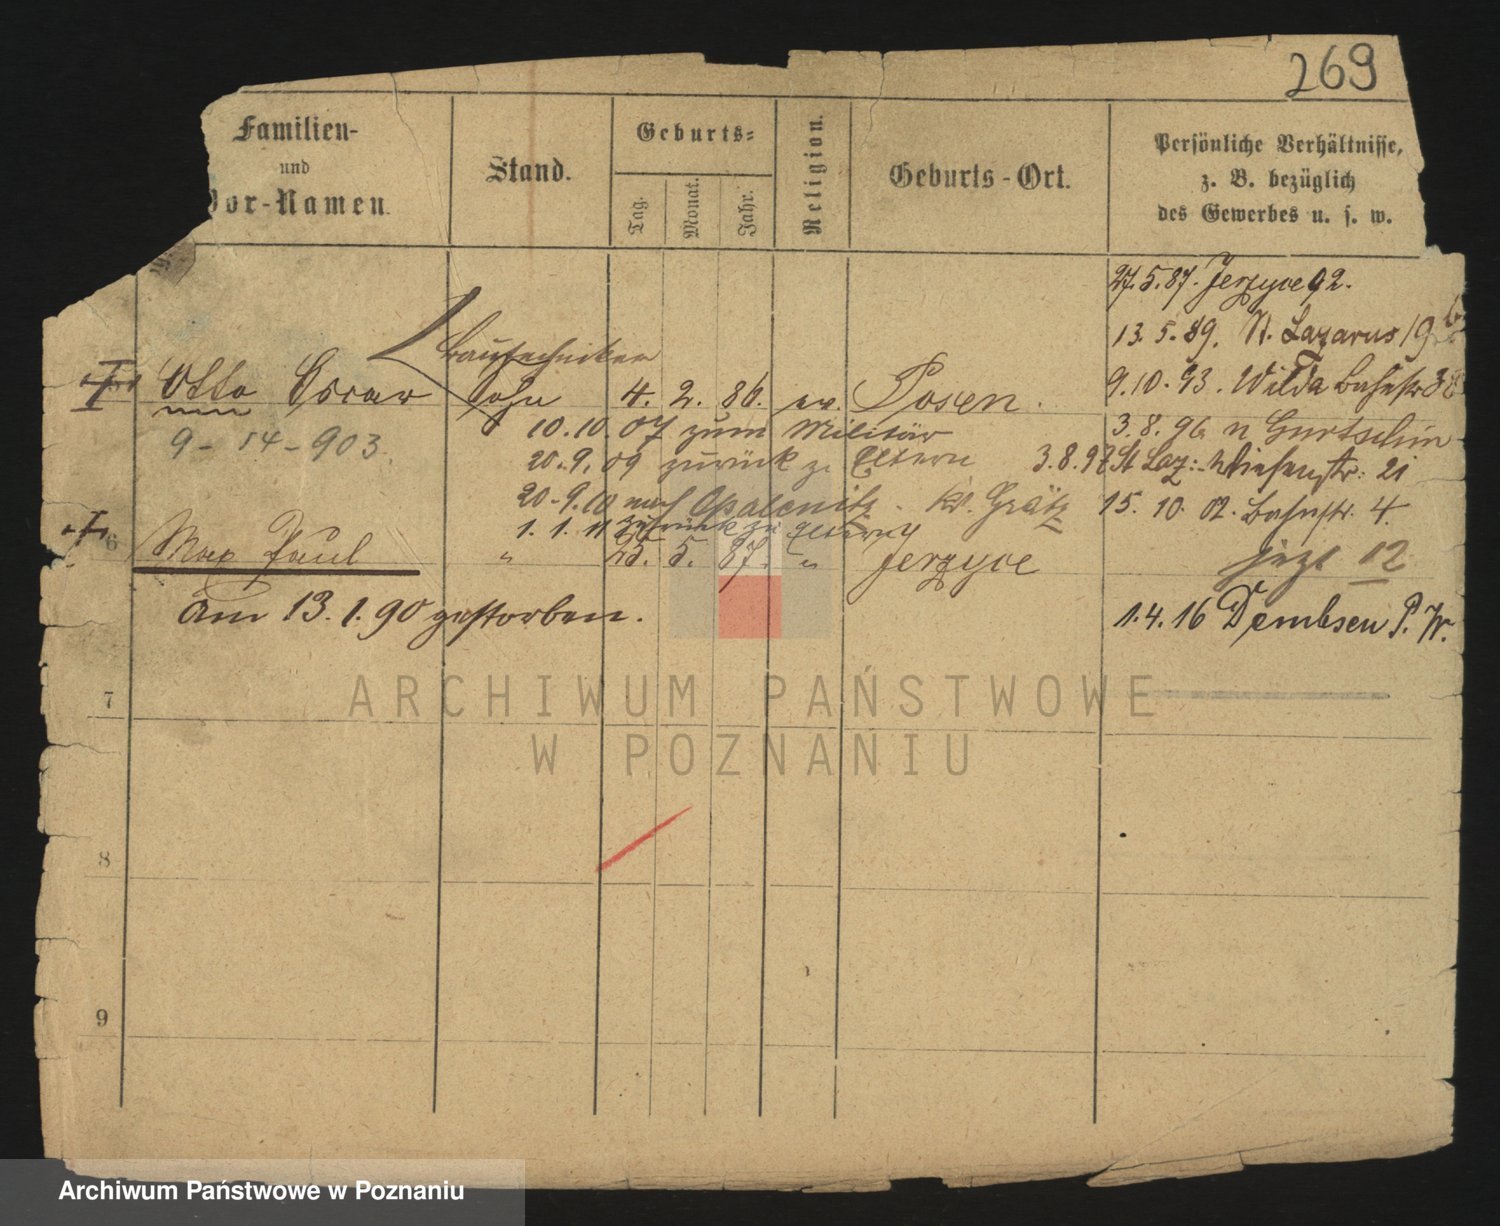 269
Familien-
und
Vor-Namen.
Stand.
Geburts-
Tag.
Monat.
Jahr.
Religion.
Geburts-Ort.
Persönliche Verhältnisse,
z. B. bezüglich
des Gewerbes u. s. w.
27. 5. 87. Jerzyce 92.
13. 5. 89. St. Lazarus 19 b
Bautechniker
Otto Oscar Sohn 4. 2. 86. ev. Posen.
9. 10. 93. Wilda Bahnstr 38
9 - 14 - 903.
10. 10. 07 zum Militär
3. 8. 96 n Gurtschin
20. 9. 09 zurück z. Eltern
3. 8. 97 St Laz: Wiesenstr: 21
20. 9. 10 nach Opalenitz. Kr. Grätz
15. 10. 02. Bahnstr. 4.
1. 1. 11 zurück zu Eltern
6 Max Paul " 25. 5. 87. " Jerzyce
jezt 12
am 13. 1. 90 gestorben.
1. 4. 16 Dembsen P. W.
7
ARCHIWUM PAŃSTWOWE
W POZNANIU
8
9
Archiwum Państwowe w Poznaniu